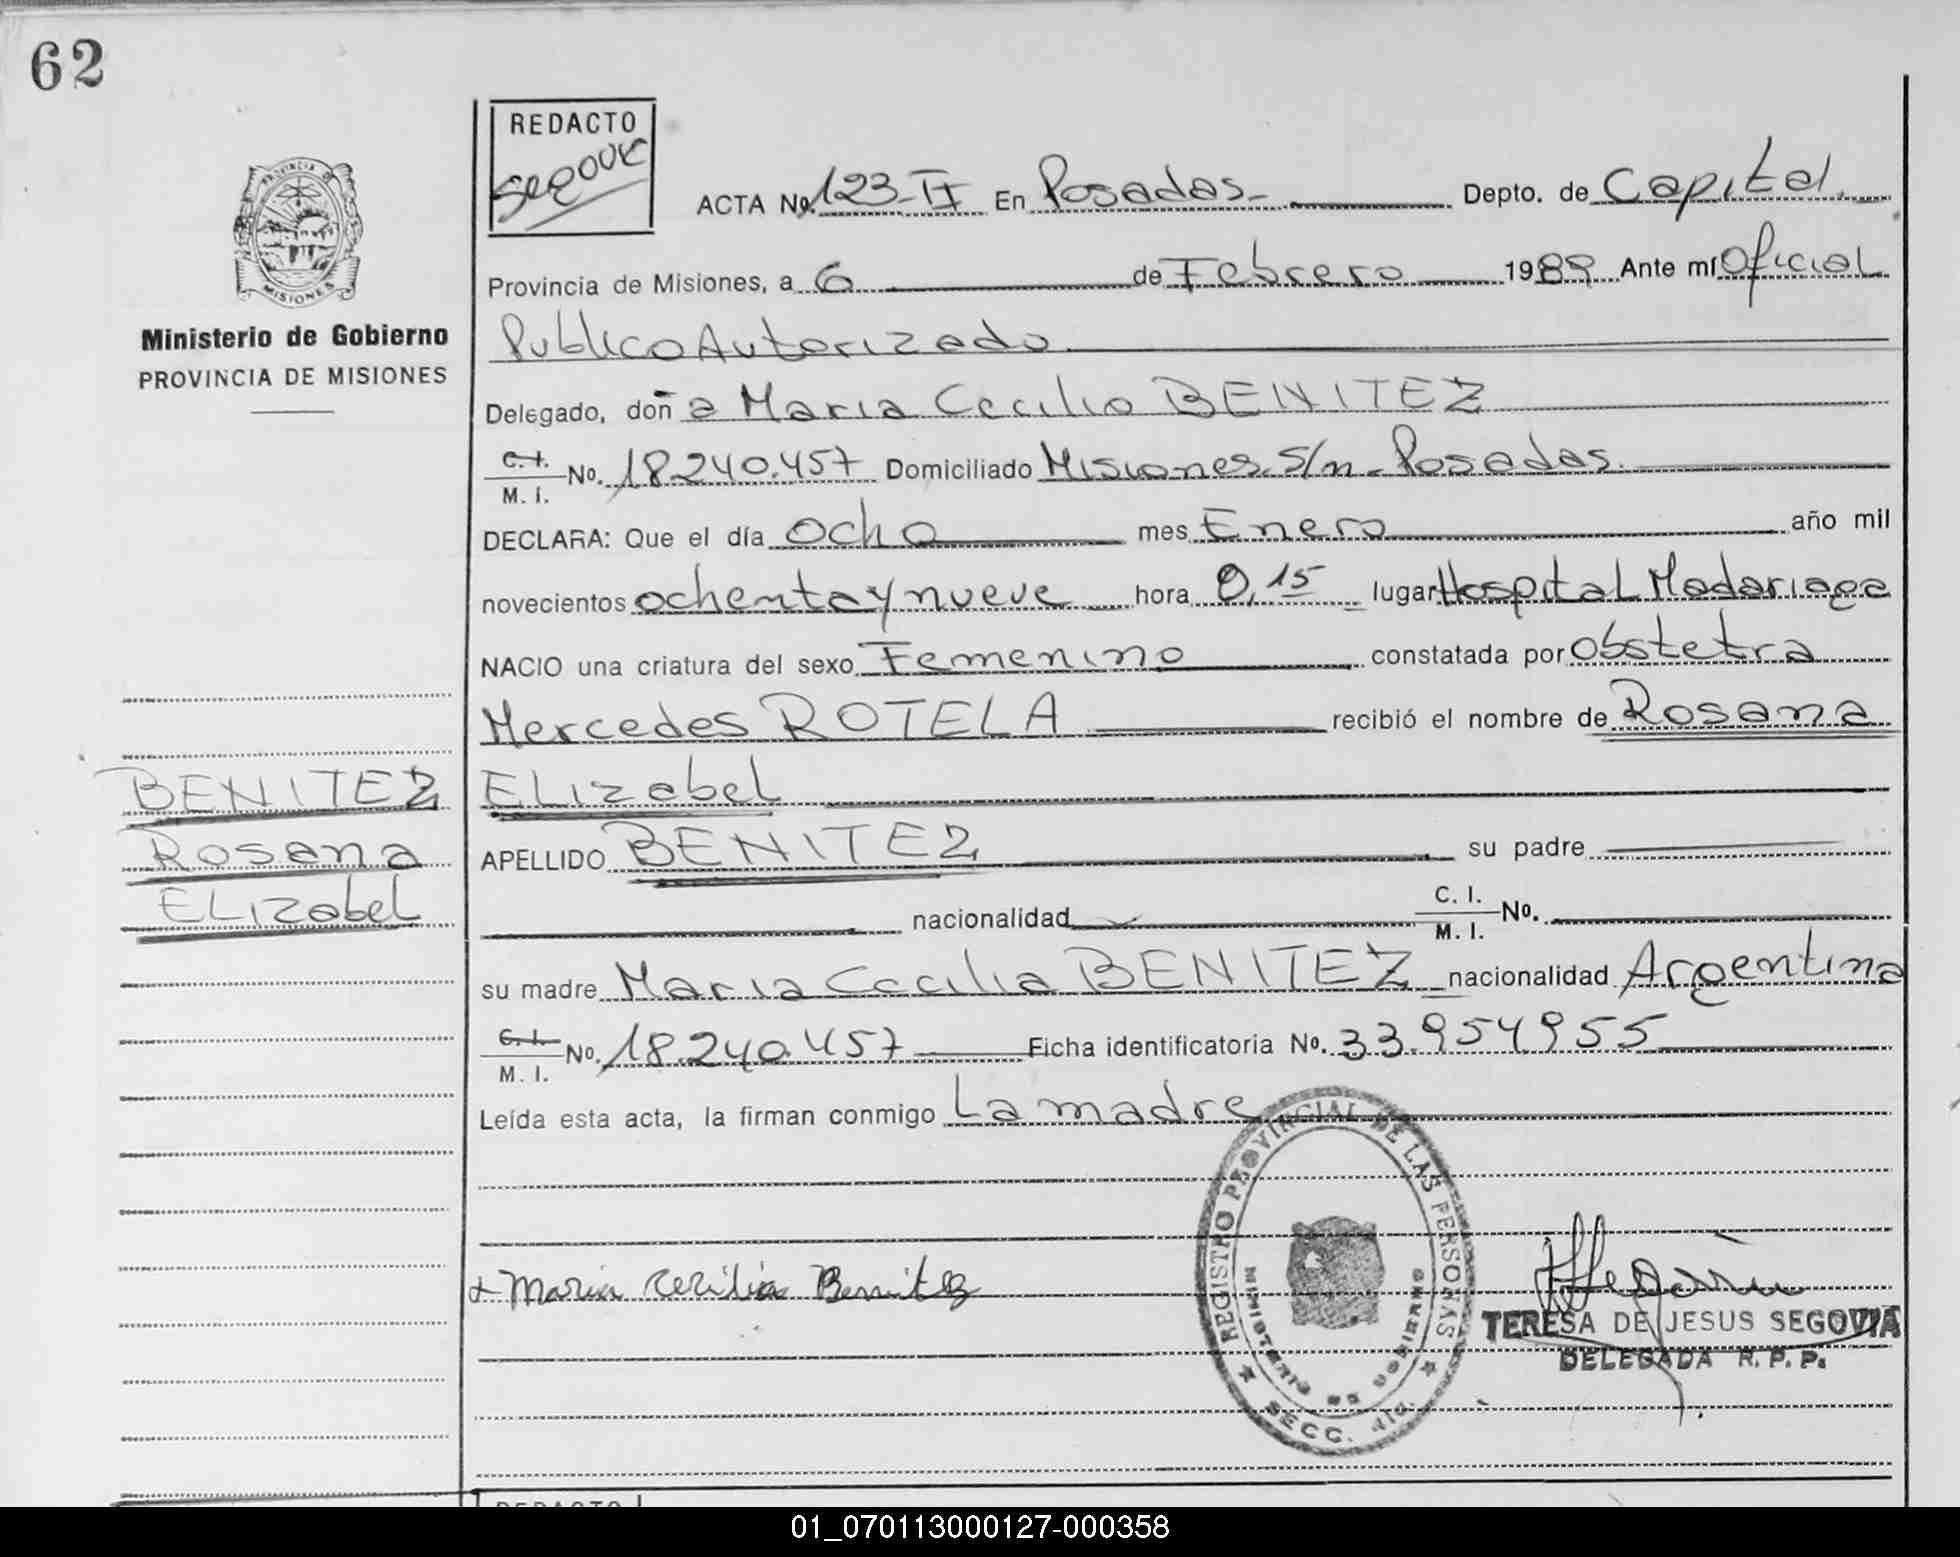 62
REDACTO
Segovia
PROVINCIA DE
MISIONES
Ministerio de Gobierno
PROVINCIA DE MISIONES
ACTA No. 123-II En Posadas Depto. de Capital
Provincia de Misiones, a 6 de Febrero 1989 Ante mí Oficial
Publico Autorizado
Delegado, doña Maria Cecilia BENITEZ
C. I. / M. I. No. 18.240.457 Domiciliado Misiones S/n - Posadas
DECLARA: Que el día ocho mes Enero año mil
novecientos ochenta y nueve hora 0,15 lugar Hospital Madariaga
NACIO una criatura del sexo Femenino constatada por Obstetra
Mercedes ROTELA recibió el nombre de Rosana
ELizabel
APELLIDO BENITEZ su padre
nacionalidad C. I. / M. I. No.
su madre Maria Cecilia BENITEZ nacionalidad Argentina
C. I. / M. I. No. 18.240.457 Ficha identificatoria No. 33.954955
Leída esta acta, la firman conmigo La madre
BENITEZ
Rosana
ELizabel
Maria Cecilia Benitez
REGISTRO PROVINCIAL DE LAS PERSONAS
MINISTERIO DE GOBIERNO
SECC. 4ta.
TERESA DE JESUS SEGOVIA
DELEGADA R. P. P.
REDACTO
01_070113000127-000358